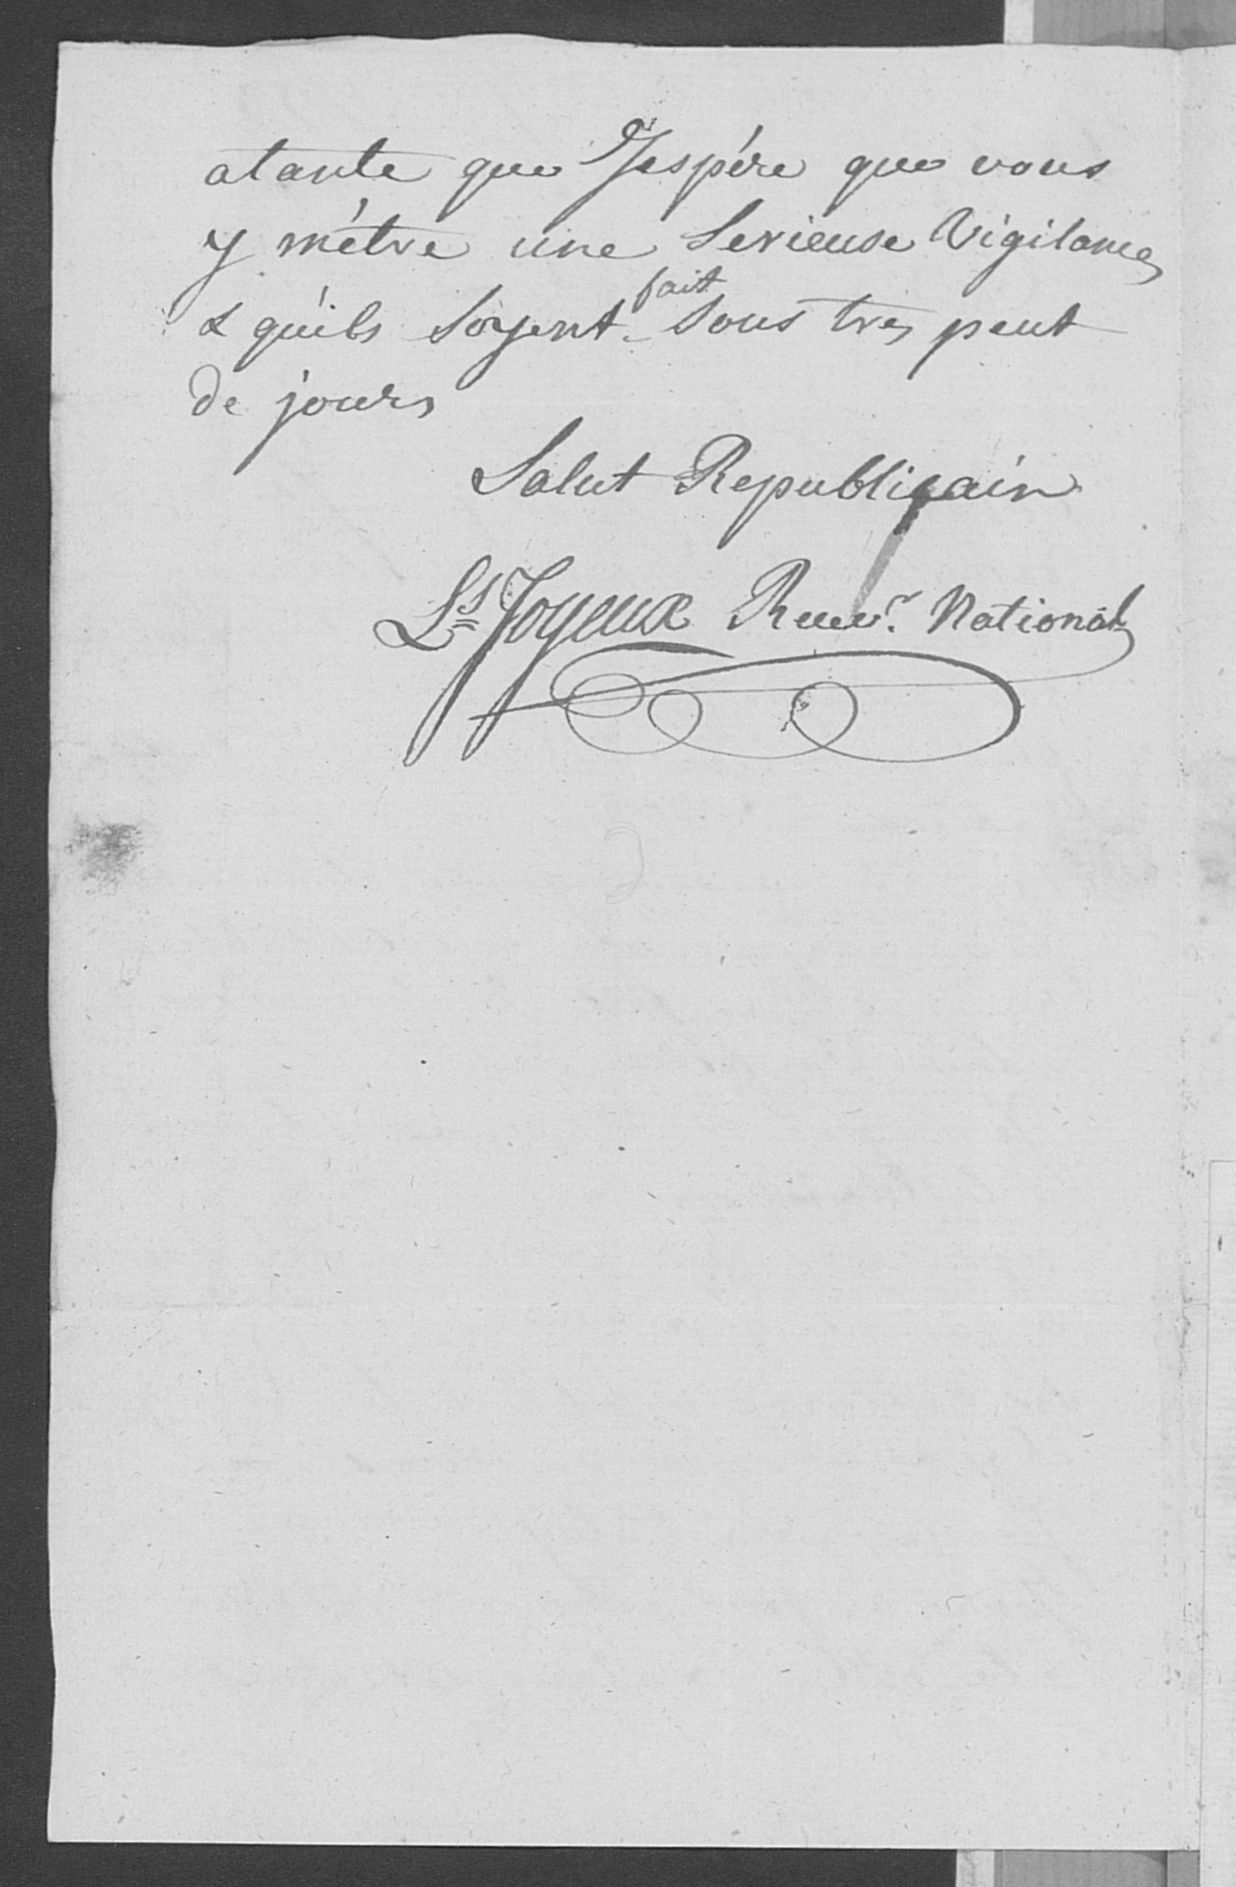 atante que J'espére que vous
y métre une Serieuse Vigilance
& qu'ils Soyent fait Sous tres peut
de jours
Salut Republicain
Ls Joyeux Recevr. National